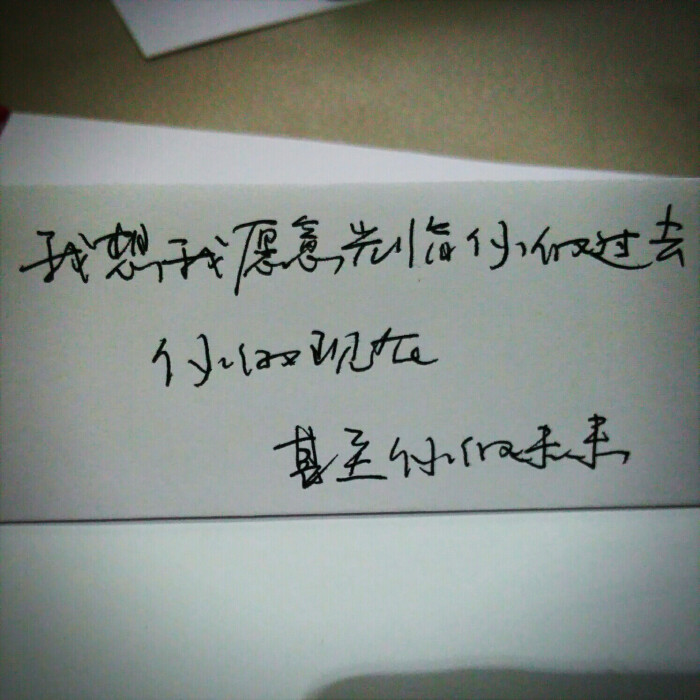 我想我愿意光临你的过去
你的现在
甚至你的未来